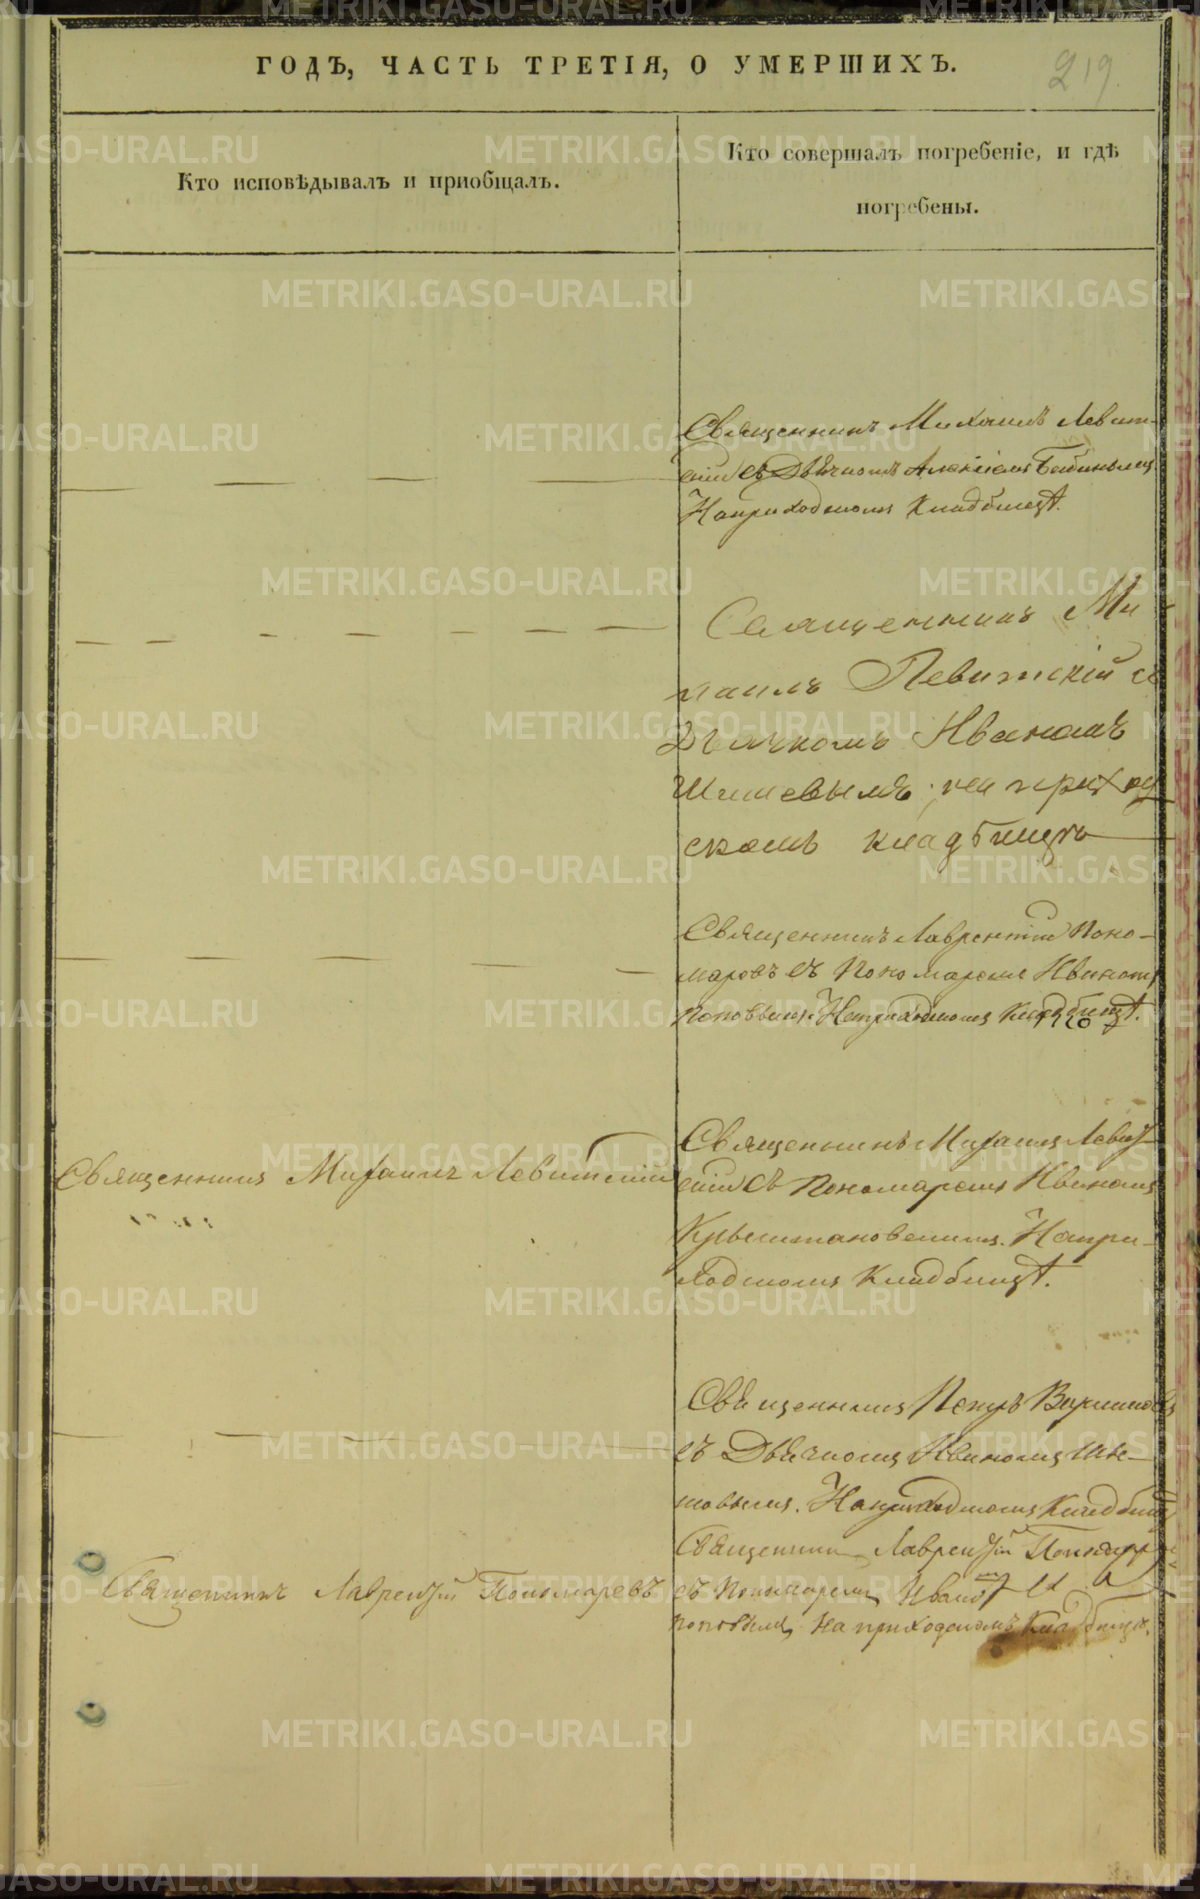 ГОДЪ, ЧАСТЬ ТРЕТІЯ, О УМЕРШИХЪ.
219.
Кто исповѣдывалъ и приобщалъ.
Кто совершалъ погребеніе, и гдѣ
погребены.
Священникъ Михаилъ Левит-
скій съ Дьячкомъ Алексіемъ Бабинымъ
На приходскомъ кладбищѣ.
Священникъ Ми
хаилъ Левитскій съ
Дьячкомъ Иваномъ
на приход
скомъ кладбищѣ
Священникъ Лаврентій Поно-
маревъ съ Пономаремъ Иваномъ
Поповымъ. На приходскомъ кладбищѣ.
Священникъ Михаилъ Левитскій
Священникъ Михаилъ Левит
скій съ Пономаремъ Иваномъ
На при-
ходскомъ кладбищѣ.
Священникъ Петръ
съ Дьячкомъ Иваномъ
На приходскомъ кладбищѣ
Священникъ Лаврентій Пономаревъ
Священникъ Лаврентій Пономаре
съ Пономаремъ Иваномъ
Поповымъ на приходскомъ кладбищѣ.
METRIKI.GASO-URAL.RU